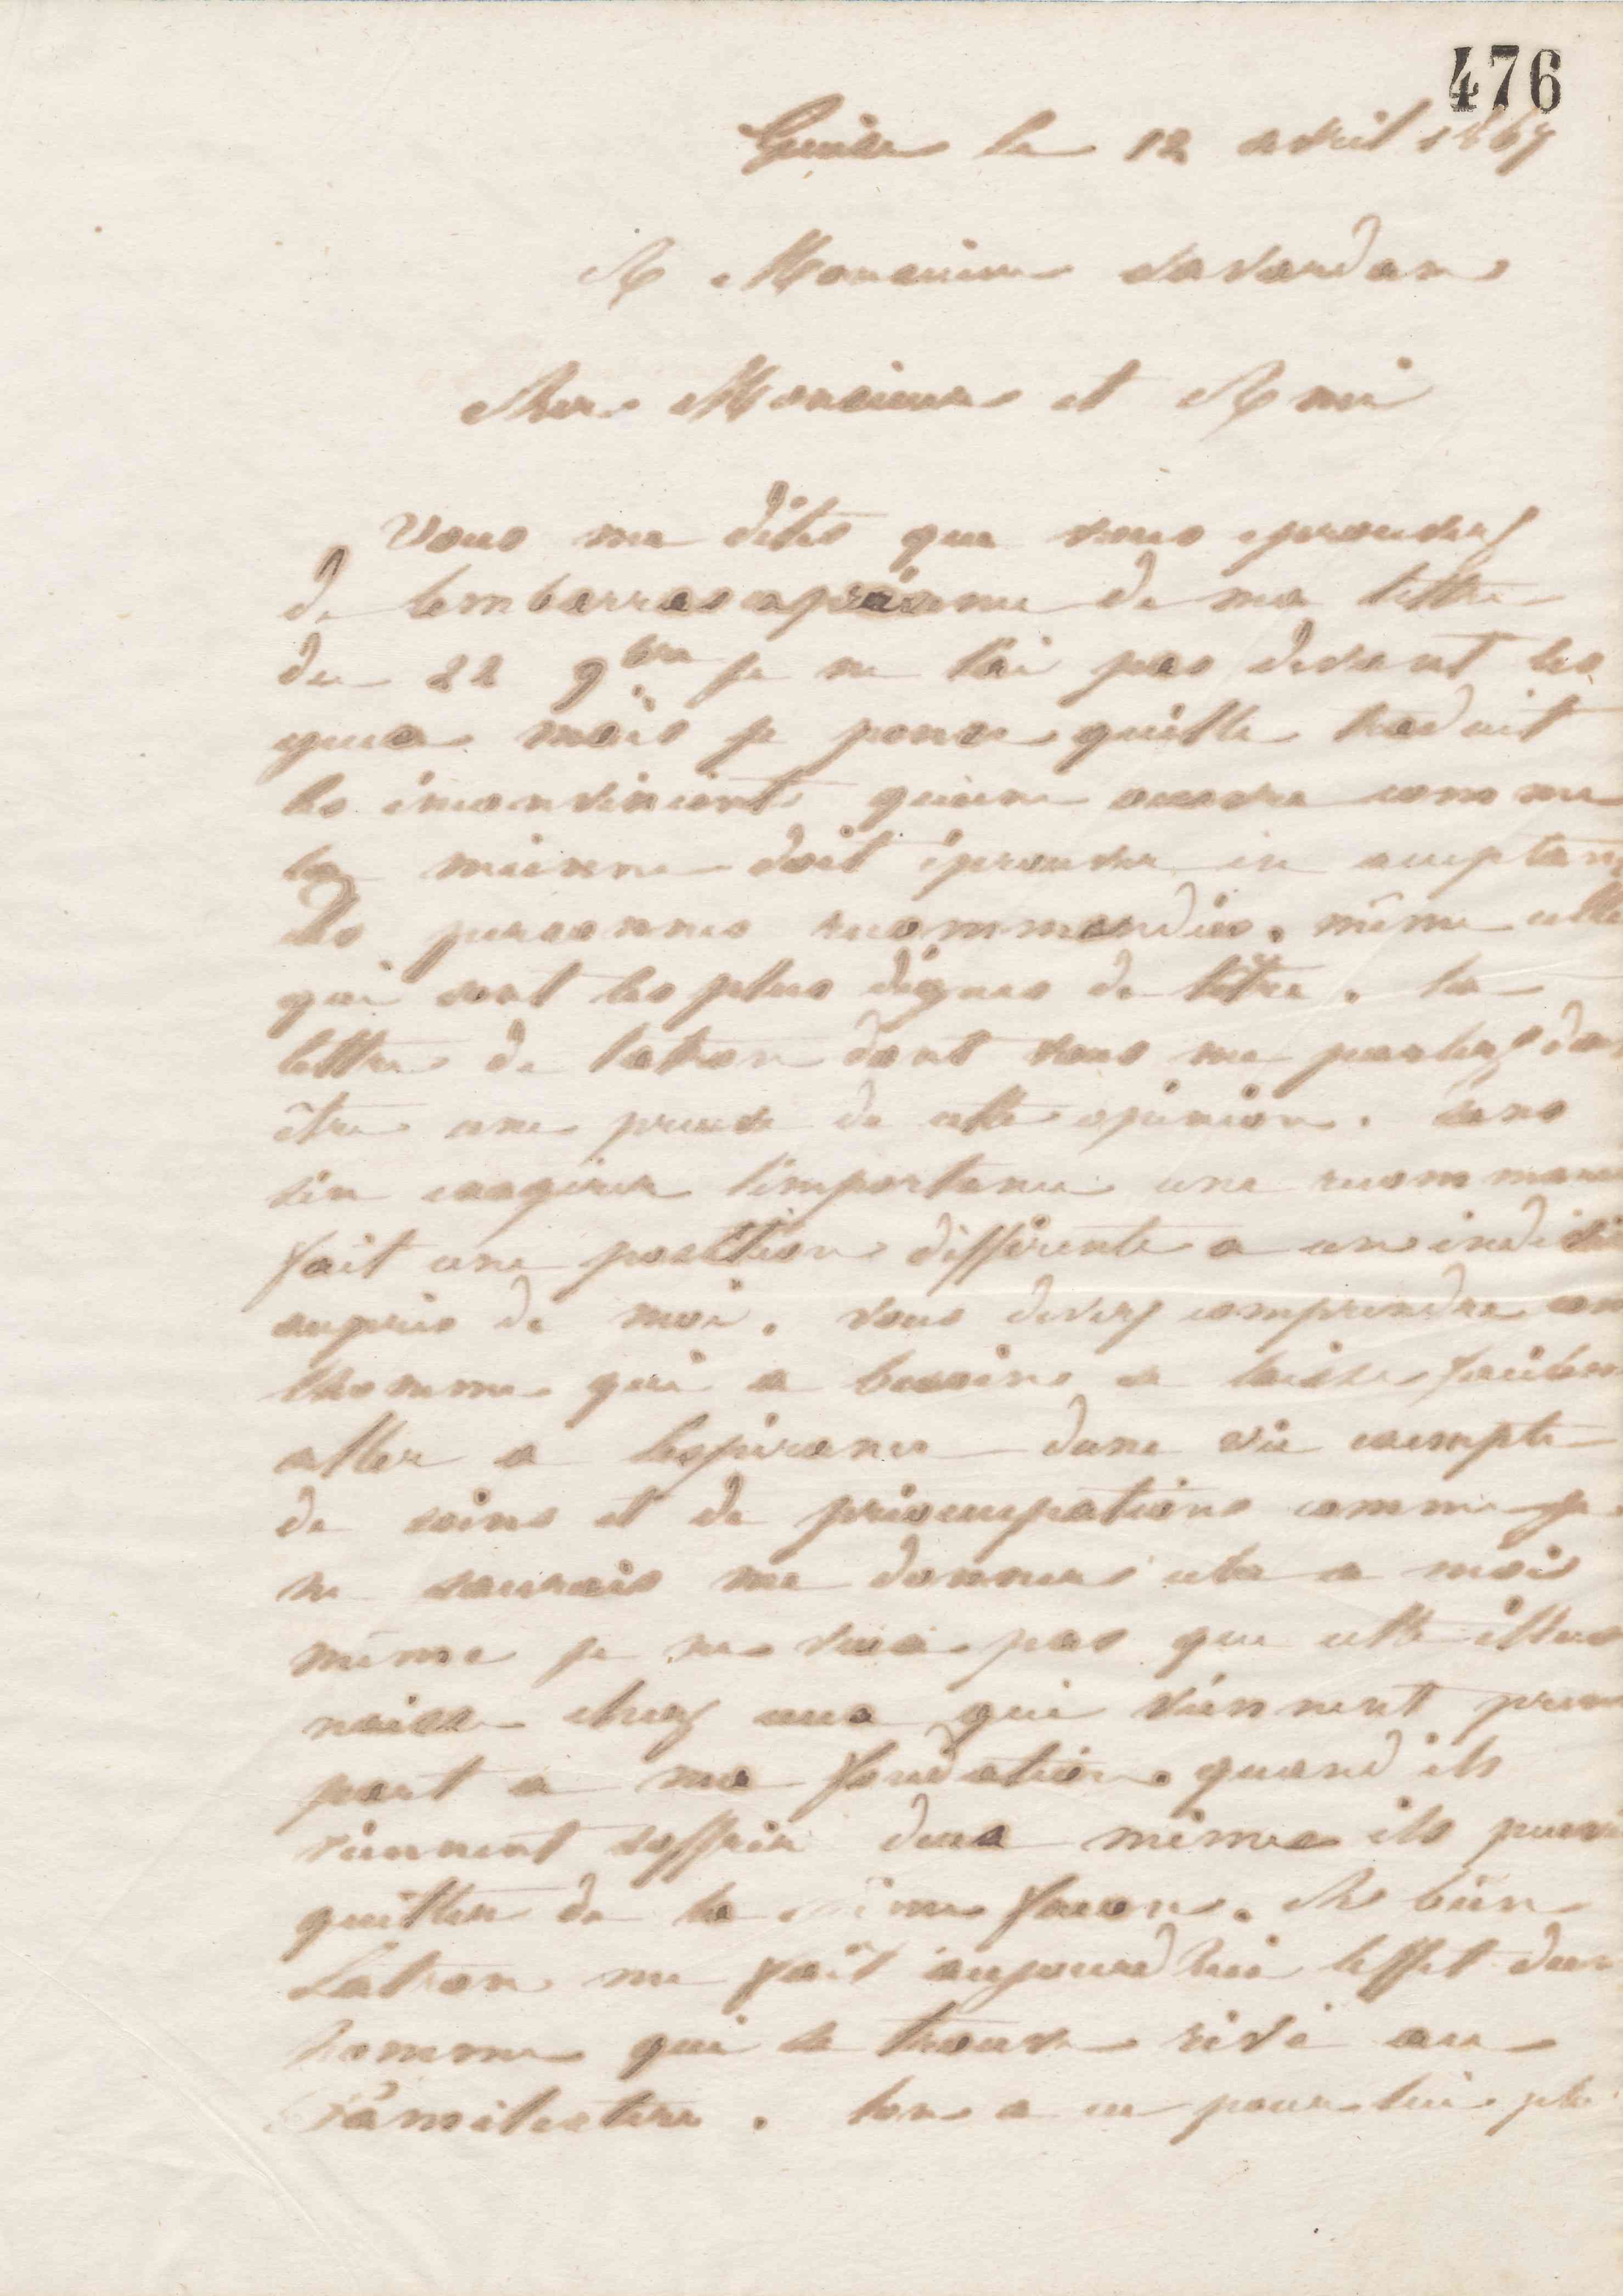 476
Guise le 12 avril 1867
A Monsieur Savardan
Cher Monsieur et Ami
Vous me dites que vous eprouvez
de lembarras a de ma lettre
du 22 9bre je ne lai pas devant les
yeux mais je pense quelle traduit
les inconvénients quune œuvre comme
la mienne doit éprouver en acceptant
des personnes recommandées. même celles
qui sont les plus dignes de lêtre. la
lettre de Latron dont vous me parlez doit
être une preuve de cette opinion. sans
sen exagérer limportance une recomman
fait une position différente a un individu
auprès de moi. vous devez comprendre com
lhomme qui a besoin se laisse facilem
aller a lespérance dune vie exempte
de soins et de préoccupations comme je
ne saurais me donner cela a moi
même je ne veux pas que cette illus
naisse chez ceux qui viennent pren
part a ma fondation. quand ils
viennent soffrir deux mêmes ils peuv
quitter de la même façon. Eh bien
Latron me fait aujourdhui leffet dun
homme qui se trouve rivé au
familistère. lon a eu pour lui plu